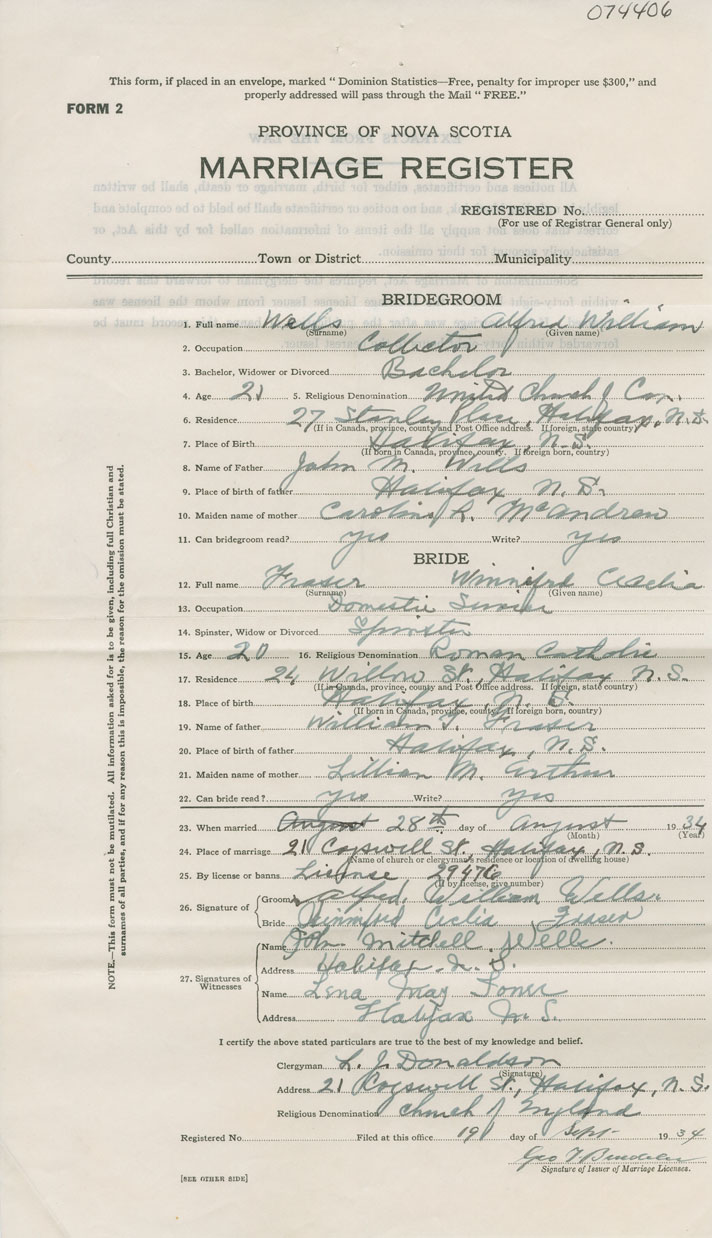 074406
This form, if placed in an envelope, marked " Dominion Statistics—Free, penalty for improper use $300," and
properly addressed will pass through the Mail " FREE."
FORM 2
PROVINCE OF NOVA SCOTIA
MARRIAGE REGISTER
REGISTERED No.
(For use of Registrar General only)
County Town or District Municipality
BRIDEGROOM
1. Full name Wells Alfred William
(Surname) (Given name)
2. Occupation Collector
3. Bachelor, Widower or Divorced Bachelor
4. Age 21 5. Religious Denomination United Church of Can.
6. Residence 27 Stanley Place, Halifax, N.S.
(If in Canada, province, county and Post Office address. If foreign, state country)
7. Place of Birth Halifax, N.S.
(If born in Canada, province, county. If foreign born, county)
8. Name of Father John M. Wells
9. Place of birth of father Halifax N.S.
10. Maiden name of mother Caroline R. McAndrew
11. Can bridegroom read? yes Write? yes
BRIDE
12. Full name Fraser Winnifred Cecelia
(Surname) (Given name)
13. Occupation Domestic
14. Spinster, Widow or Divorced Spinster
15. Age 20 16. Religious Denomination Roman Catholic
17. Residence 24 Willow St., Halifax N.S.
(If in Canada, province, county and Post Office address. If foreign, state country)
18. Place of birth Halifax, N.S.
(If born in Canada, province, county. If foreign born, country)
19. Name of father William J. Fraser
20. Place of birth of father Halifax, N.S.
21. Maiden name of mother Lillian M. Arthur
22. Can bride read? yes Write? yes
23. When married August 28th day of August 1934
(Month) (Year)
24. Place of marriage 21 Cogswell St., Halifax, N.S.
(Name of church or clergyman's residence or location of dwelling house)
25. By license or banns License 29476
(If by license, give number)
26. Signature of Groom Alfred William Wells
Bride Winnifred Cecelia Fraser
27. Signatures of Witnesses
Name John Mitchell Wells.
Address Halifax N.S.
Name Lena May
Address Halifax N.S.
I certify the above stated particulars are true to the best of my knowledge and belief.
Clergyman L. J. Donaldson
(Signature)
Address 21 Cogswell St., Halifax, N.S.
Religious Denomination Church of England
Registered No. Filed at this office 19 day of Sept- 1934
Geo
Signature of Issuer of Marriage Licenses.
[SEE OTHER SIDE]
NOTE.—This form must not be mutilated. All information asked for is to be given, including full Christian and
surnames of all parties, and if for any reason this is impossible, the reason for the omission must be stated.